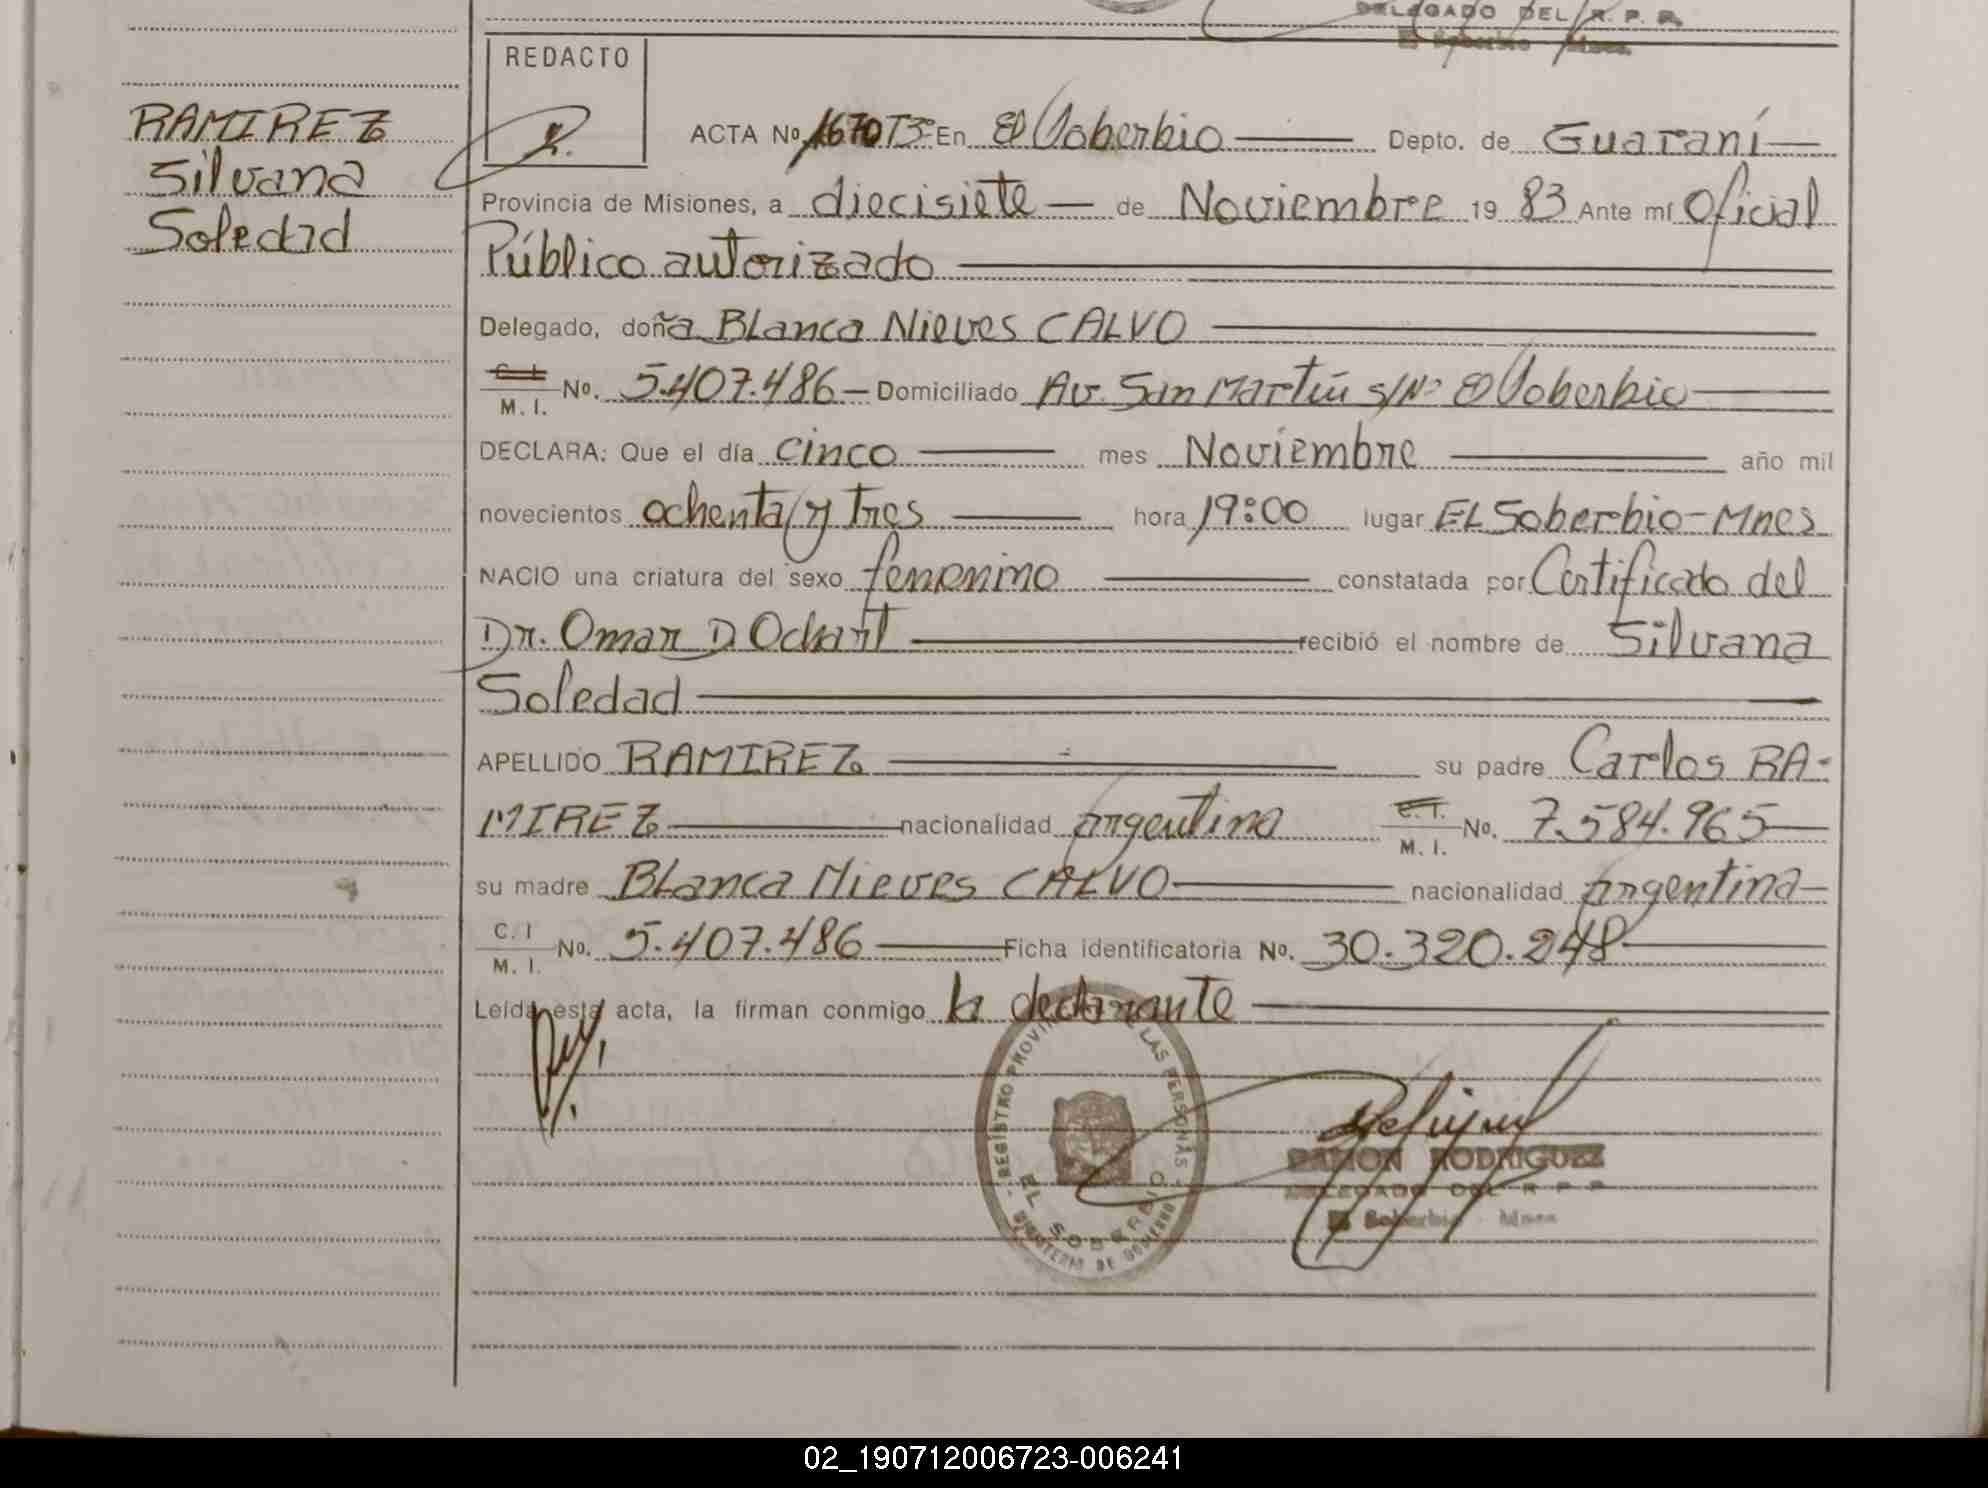 DELEGADO DEL R. P. P.
El Soberbio Mnes.
REDACTO
RAMIREZ
Silvana
Soledad
ACTA No. 1670 Tº 3 En El Soberbio Depto. de Guaraní
Provincia de Misiones, a diecisiete de Noviembre 19 83 Ante mí Oficial
Público autorizado
Delegado, doña Blanca Nieves CALVO
C. I. M. I. No. 5.407.486 Domiciliado Av. San Martín s/Nº El Soberbio
DECLARA: Que el día cinco mes Noviembre año mil
novecientos ochenta y tres hora 19:00 lugar EL Soberbio-Mnes
NACIO una criatura del sexo femenino constatada por Certificado del
Dr. Omar D. recibió el nombre de Silvana
Soledad
APELLIDO RAMIREZ su padre Carlos RA-
MIREZ nacionalidad argentina C. I. M. I. No. 7.584.965
su madre Blanca Nieves CALVO nacionalidad argentina
C. I M. I. No. 5.407.486 Ficha identificatoria No. 30.320.248
Leída esta acta, la firman conmigo la declarante
REGISTRO PROVINCIAL DE LAS PERSONAS
EL SOBERBIO
MINISTERIO DE GOBIERNO
RAMON RODRIGUEZ
DELEGADO DEL R P P
El Soberbio - Mnes
02_190712006723-006241